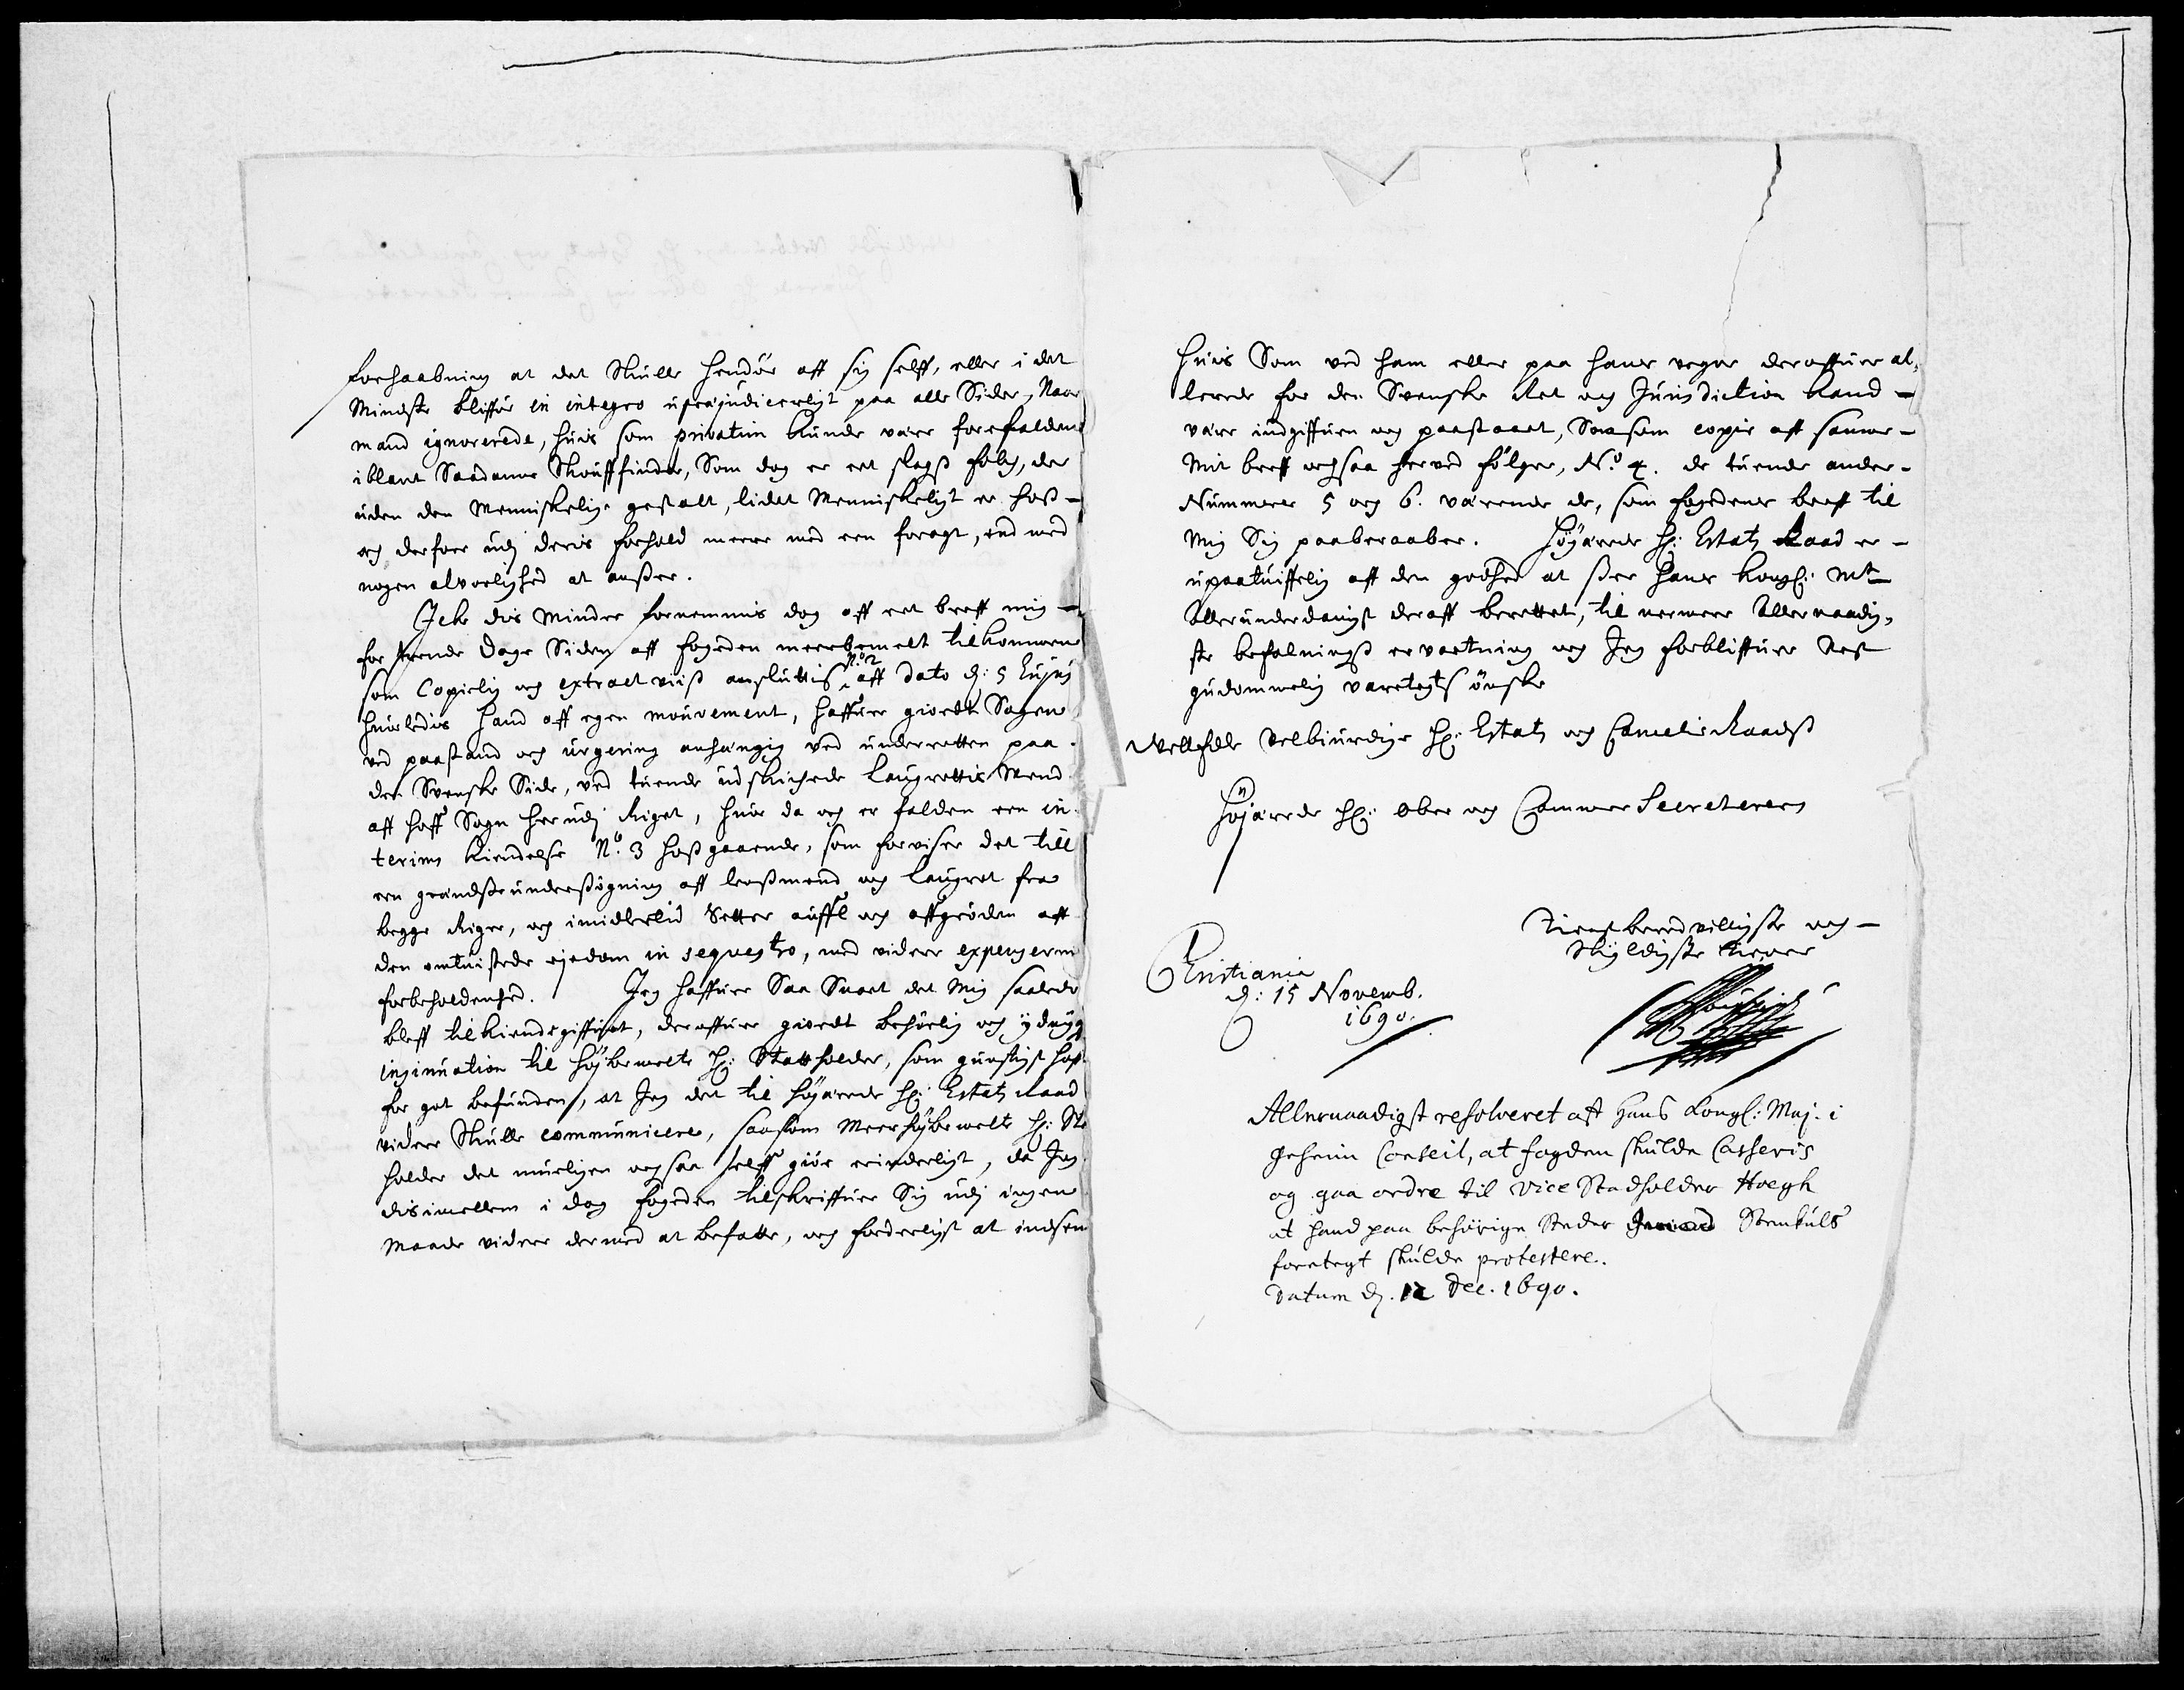 forhaabning at det skulle hendøe aff sig self, eller i det
Mindste bliffue in integro upræjudiceerligt paa alle Sider, Naar
mand ignorerede, huis som privatim kunde være forefalden
iblant Saadanne Skouffinder, Som dog er eet slags folch, der
uden den Menniskelige gestalt, lidet Menniskeligt er hoss
och derfore udj deris forhold meere med een foragt, end med
nogen alvorlighed at ansee.
Icke dis Mindre fornemmis dog aff eet breff mig
for trende dage Siden aff fogeden meerbemelt tilkommen
som Copielig och extract viis ansluttis No 2 aff dato d: 5 hujus
huorledis hand aff egen mouvement, haffuer giordt Sagen
ved paastand och urgering anhængig ved underretten paa
den Svenske Side, ved tuende udskichede Laugrettis Mend
aff hoff Sogn her udj Riget, huor da och er falden een in
terims Kiendelse No. 3 hosgaaende, som forviser det till
een grændse undersøgning aff lensmend och Laugret fra
begge Riger, och imidlertid Setter auffl och affgrøden aff
den omtuistede ejedom in sequestro, med videre expensernes
forbeholdenhed. Jeg haffuer Saa Snart det Mig saaledis
bleff tilkiendegiffuet, deroffuer giordt behørlig och ydmyg
insinuation til Høybemelte Hr: Statholder, som gunstigst haff
for got befunden, at Jeg det til Høyærede Hr: Estatz Raad
videre skulle communicere, saasom Meerhøybemelte Hr: St
holder det mueligen ochsaa self giør erinderligt, da Jeg
disimellem i dag fogeden tilskriffuer Sig udj ingen
Maade videre dermed at befatte, och forderligst at indsen
huis Som ved ham eller paa hans vegne deroffuer al¬
lerede for den Svenske Ret och Jurisdiction kand
være indgiffuen och paastaaet, Saasom copie aff samme
Mit breff ochsaa herved følger, No. 4. de tuende ander
Nummere 5 och 6. værende de, som fogedens breff til
Mig Sig paaberaaber. Høyærede Hr: Estatz Raad er
upaatuiffelig aff den godhed at see hans Kongl: Mt
Allerunderdanigst deraff berettet, til nermere Allernaadig¬
ste befalnings ervartning och Jeg forbliffuer Nest
gudommelig varetegts ønske
Welledle Velbiurdige Hr: Estatz och Cancelie Raads
Høyærede Hr: Ober och Cammer Secreterers
Tienstberedvilligste och
Skyldigste tiener
Christiania
d: 15 Novemb.
1690.
Allernaadigst resolveret aff Hans Kongl: Maj. i
geheim Conseil, at fogden skulde Casseris
og gaa ordre til Vice Stadholder Høegh
at hand paa behørige Steder Stenkuls
foretegt skulde protestere.
Datum d. 12 Dec. 1690.